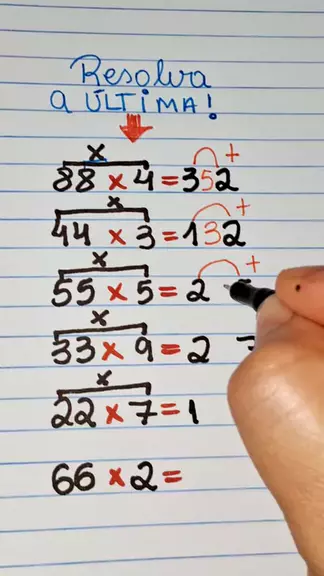 Resolva
A ÚLTIMA!
x
88 x 4 = 352 +
x
44 x 3 = 132 +
x
55 x 5 = 2 +
x
33 x 9 = 2 7
x
22 x 7 = 1
66 x 2 =